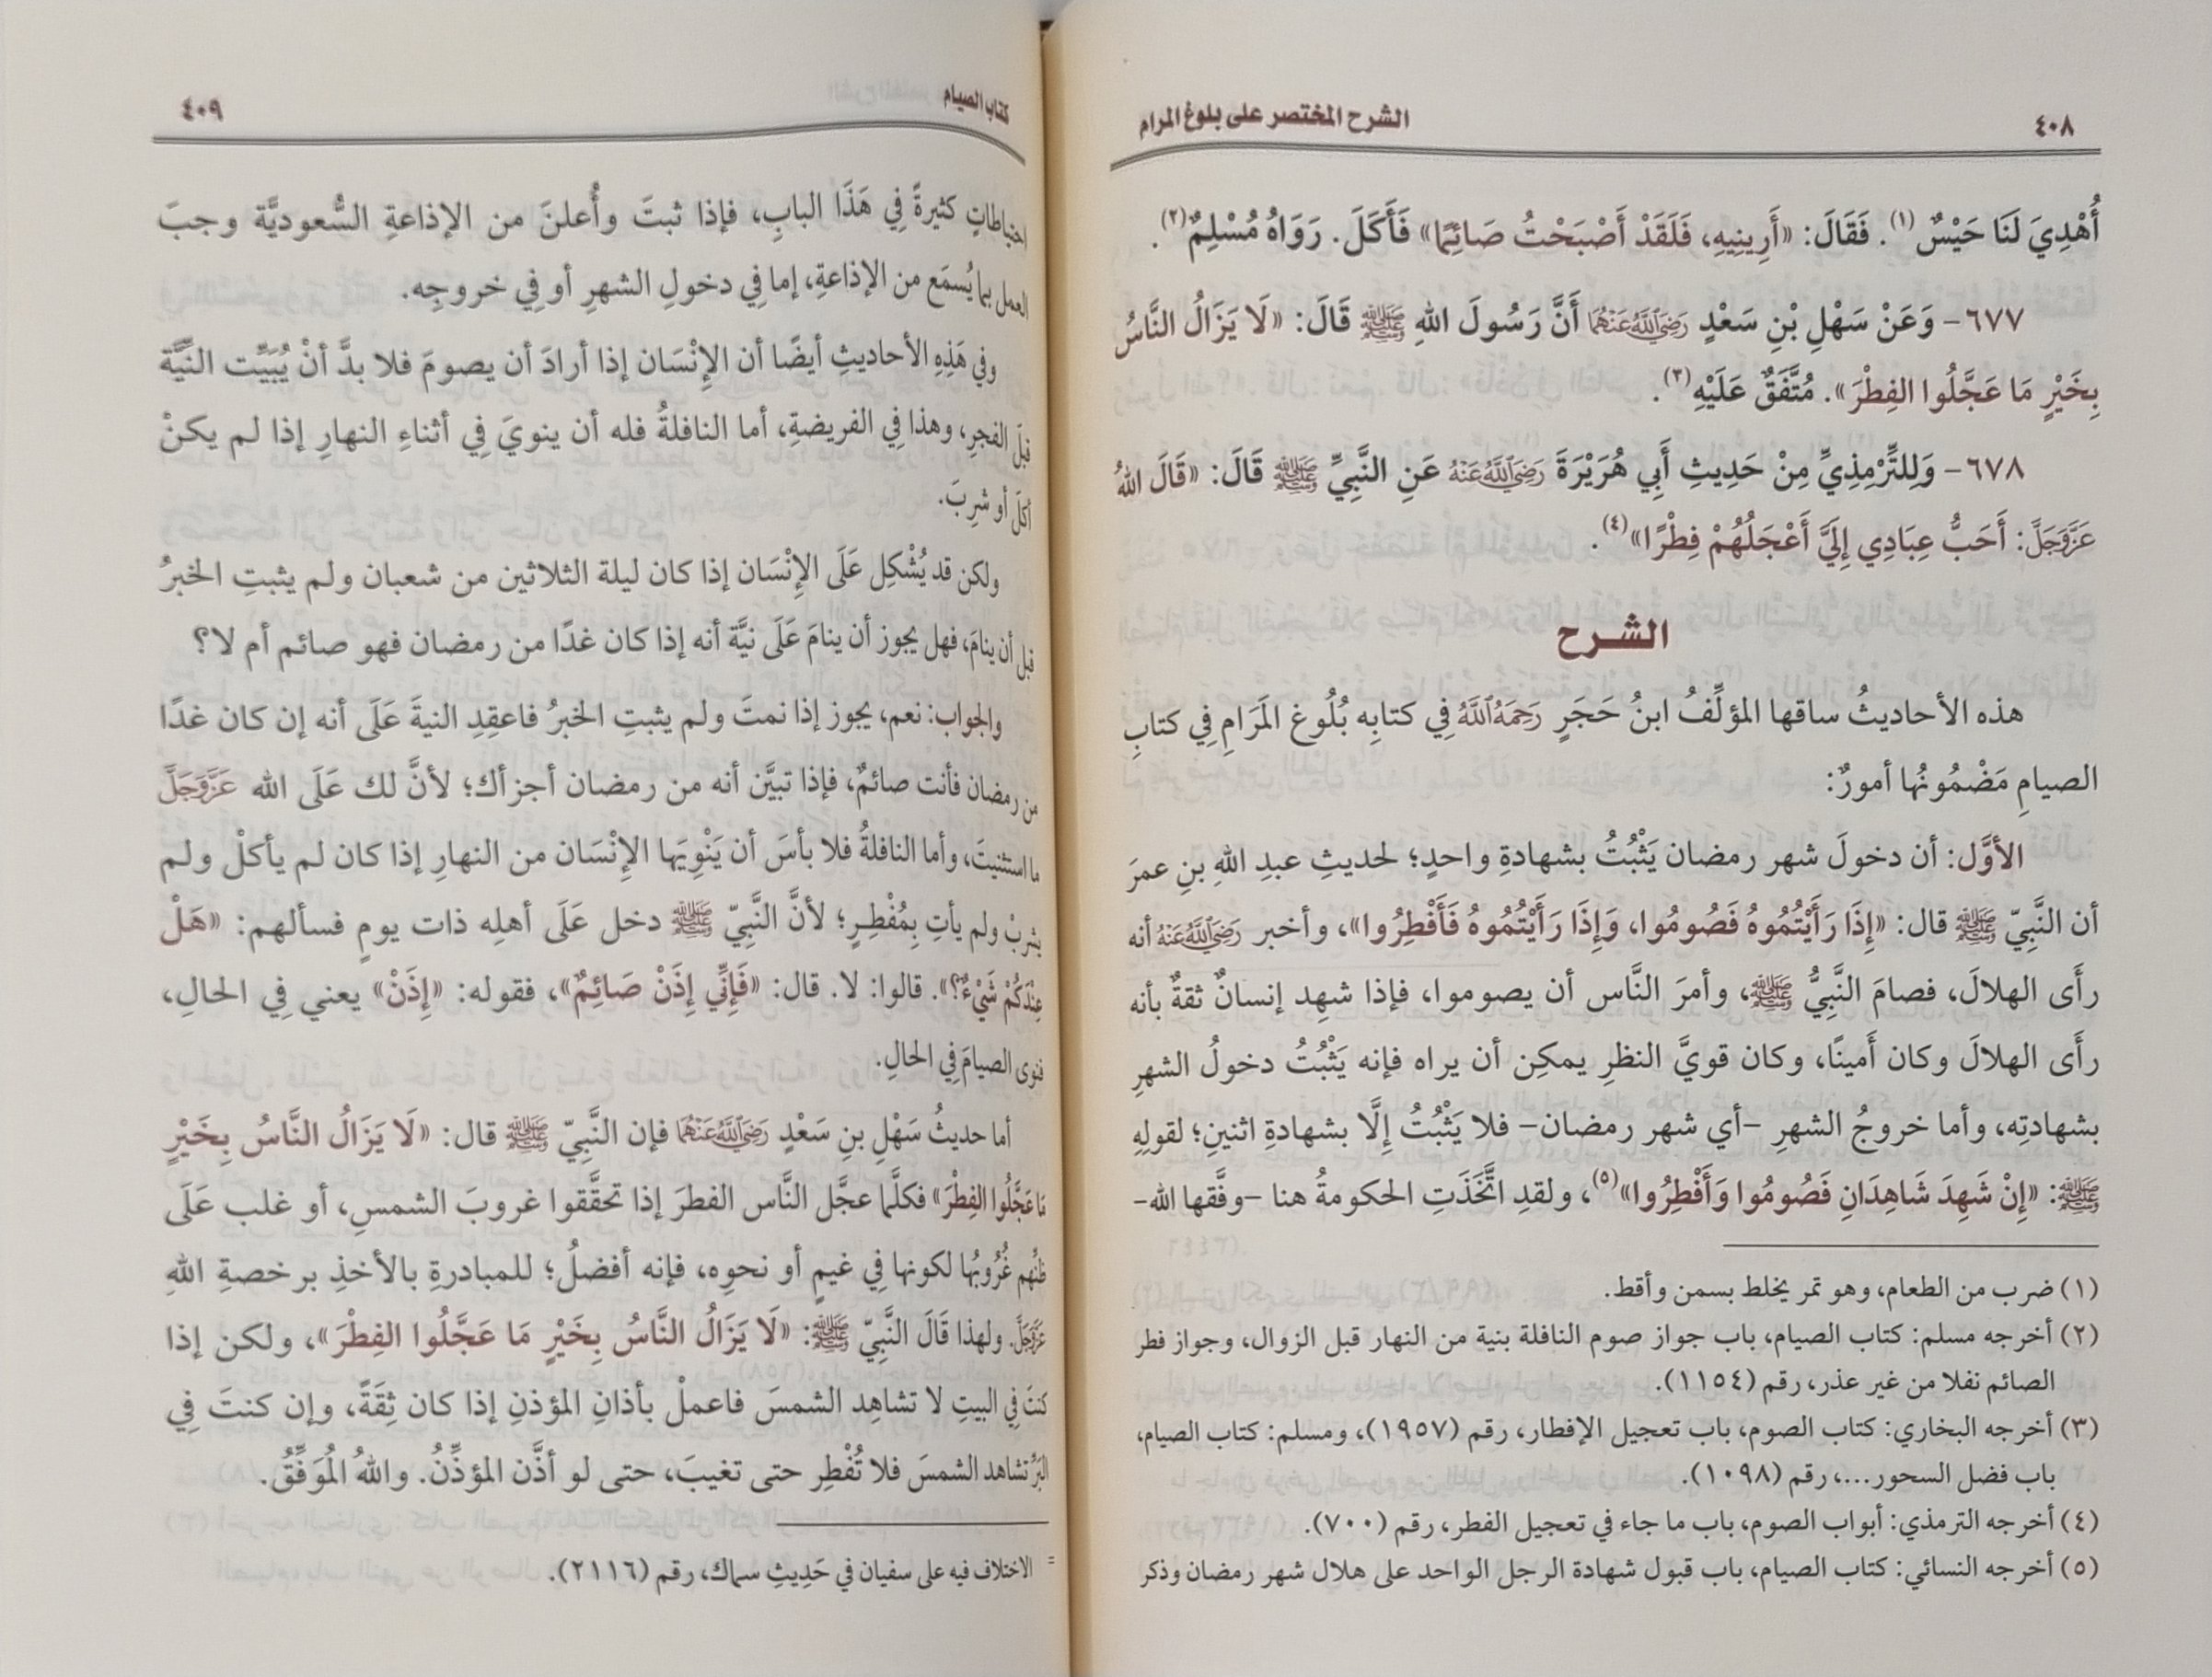 ٤٠٨
الشرح المختصر على بلوغ المرام
أُهْدِيَ لَنَا حَيْسٌ(١). فَقَالَ: «أَرِينِيهِ، فَلَقَدْ أَصْبَحْتُ صَائِمًا» فَأَكَلَ. رَوَاهُ مُسْلِمٌ(٢).
٦٧٧- وَعَنْ سَهْلِ بْنِ سَعْدٍ رَضِيَ اللَّهُ عَنْهُمَا أَنَّ رَسُولَ اللهِ ﷺ قَالَ: «لَا يَزَالُ النَّاسُ
بِخَيْرٍ مَا عَجَّلُوا الفِطْرَ». مُتَّفَقٌ عَلَيْهِ(٣).
٦٧٨- وَلِلتِّرْمِذِيِّ مِنْ حَدِيثِ أَبِي هُرَيْرَةَ رَضِيَ اللَّهُ عَنْهُ عَنِ النَّبِيِّ ﷺ قَالَ: «قَالَ اللهُ
عَزَّوَجَلَّ: أَحَبُّ عِبَادِي إِلَيَّ أَعْجَلُهُمْ فِطْرًا»(٤).
الشرح
هذه الأحاديثُ ساقها المؤلِّفُ ابنُ حَجَرٍ رَحِمَهُ اللَّهُ فِي كتابِه بُلُوغ المَرَامِ فِي كتابِ
الصيامِ مَضْمُونُها أمورٌ:
الأوَّل: أن دخولَ شهر رمضان يَثْبُتُ بشهادةِ واحدٍ؛ لحديثِ عبدِ اللهِ بنِ عمرَ
أن النَّبِيّ ﷺ قال: «إِذَا رَأَيْتُمُوهُ فَصُومُوا، وَإِذَا رَأَيْتُمُوهُ فَأَفْطِرُوا»، وأخبر رَضِيَ اللَّهُ عَنْهُ أنه
رأَى الهلالَ، فصامَ النَّبِيُّ ﷺ، وأمرَ النَّاس أن يصوموا، فإذا شهِد إنسانٌ ثقةٌ بأنه
رأَى الهلالَ وكان أَمينًا، وكان قويَّ النظرِ يمكِن أن يراه فإنه يَثْبُتُ دخولُ الشهرِ
بشهادتِه، وأما خروجُ الشهرِ -أي شهر رمضان- فلا يَثْبُتُ إلَّا بشهادةِ اثنينِ؛ لقولِهِ
ﷺ: «إِنْ شَهِدَ شَاهِدَانِ فَصُومُوا وَأَفْطِرُوا»(٥)، ولقدِ اتَّخَذَتِ الحكومةُ هنا -وفَّقها الله-
(١) ضرب من الطعام، وهو تمر يخلط بسمن وأقط.
(٢) أخرجه مسلم: كتاب الصيام، باب جواز صوم النافلة بنية من النهار قبل الزوال، وجواز فطر
الصائم نفلا من غير عذر، رقم (١١٥٤).
(٣) أخرجه البخاري: كتاب الصوم، باب تعجيل الإفطار، رقم (١٩٥٧)، ومسلم: كتاب الصيام،
باب فضل السحور...، رقم (١٠٩٨).
(٤) أخرجه الترمذي: أبواب الصوم، باب ما جاء في تعجيل الفطر، رقم (٧٠٠).
(٥) أخرجه النسائي: كتاب الصيام، باب قبول شهادة الرجل الواحد على هلال شهر رمضان وذكر
كتاب الصيام
٤٠٩
احتياطاتٍ كثيرةً فِي هَذَا البابِ، فإذا ثبتَ وأُعلنَ من الإذاعةِ السُّعوديَّة وجبَ
العمل بما يُسمَع من الإذاعةِ، إما فِي دخولِ الشهرِ أو فِي خروجِه.
وفي هَذِهِ الأحاديثِ أيضًا أن الإنْسَان إذا أرادَ أن يصومَ فلا بدَّ أنْ يُبَيِّت النيَّة
قبلَ الفجرِ، وهذا فِي الفريضةِ، أما النافلةُ فله أن ينويَ فِي أثناءِ النهارِ إذا لم يكنْ
أكلَ أو شرِبَ.
ولكن قد يُشْكِل عَلَى الإنْسَان إذا كان ليلة الثلاثين من شعبان ولم يثبتِ الخبرُ
قبل أن ينامَ، فهل يجوز أن ينامَ عَلَى نيَّة أنه إذا كان غدًا من رمضان فهو صائم أم لا؟
والجواب: نعم، يجوز إذا نمتَ ولم يثبتِ الخبرُ فاعقِدِ النيةَ عَلَى أنه إن كان غدًا
من رمضان فأنت صائمٌ، فإذا تبيَّن أنه من رمضان أجزأك؛ لأنَّ لك عَلَى الله عَزَّوَجَلَّ
ما استثنيتَ، وأما النافلةُ فلا بأسَ أن يَنْوِيَها الإنْسَان من النهارِ إذا كان لم يأكلْ ولم
يشربْ ولم يأتِ بِمُفْطِرٍ؛ لأنَّ النَّبِيّ ﷺ دخل عَلَى أهلِه ذات يومٍ فسألهم: «هَلْ
عِنْدَكُمْ شَيْءٌ؟». قالوا: لا. قال: «فَإِنِّي إِذَنْ صَائِمٌ»، فقوله: «إِذَنْ» يعني فِي الحالِ،
فنوى الصيامَ فِي الحالِ.
أما حديثُ سَهْلِ بنِ سَعْدٍ رَضِيَ اللَّهُ عَنْهُمَا فإن النَّبِيّ ﷺ قال: «لَا يَزَالُ النَّاسُ بِخَيْرٍ
مَا عَجَّلُوا الفِطْرَ» فكلَّما عجَّل النَّاس الفطرَ إذا تحقَّقوا غروبَ الشمسِ، أو غلب عَلَى
ظنِّهم غُرُوبُها لكونها فِي غيمٍ أو نحوِه، فإنه أفضلُ؛ للمبادرةِ بالأخذِ برخصةِ اللهِ
عَزَّوَجَلَّ. ولهذا قَالَ النَّبِيّ ﷺ: «لَا يَزَالُ النَّاسُ بِخَيْرٍ مَا عَجَّلُوا الفِطْرَ»، ولكن إذا
كنتَ فِي البيتِ لا تشاهِد الشمسَ فاعملْ بأذانِ المؤذنِ إذا كان ثِقَةً، وإن كنتَ فِي
البَرِّ تشاهد الشمسَ فلا تُفْطِر حتى تغيبَ، حتى لو أذَّن المؤذِّنُ. واللهُ المُوَفِّقُ.
= الاختلاف فيه على سفيان في حَدِيثِ سماك، رقم (٢١١٦).